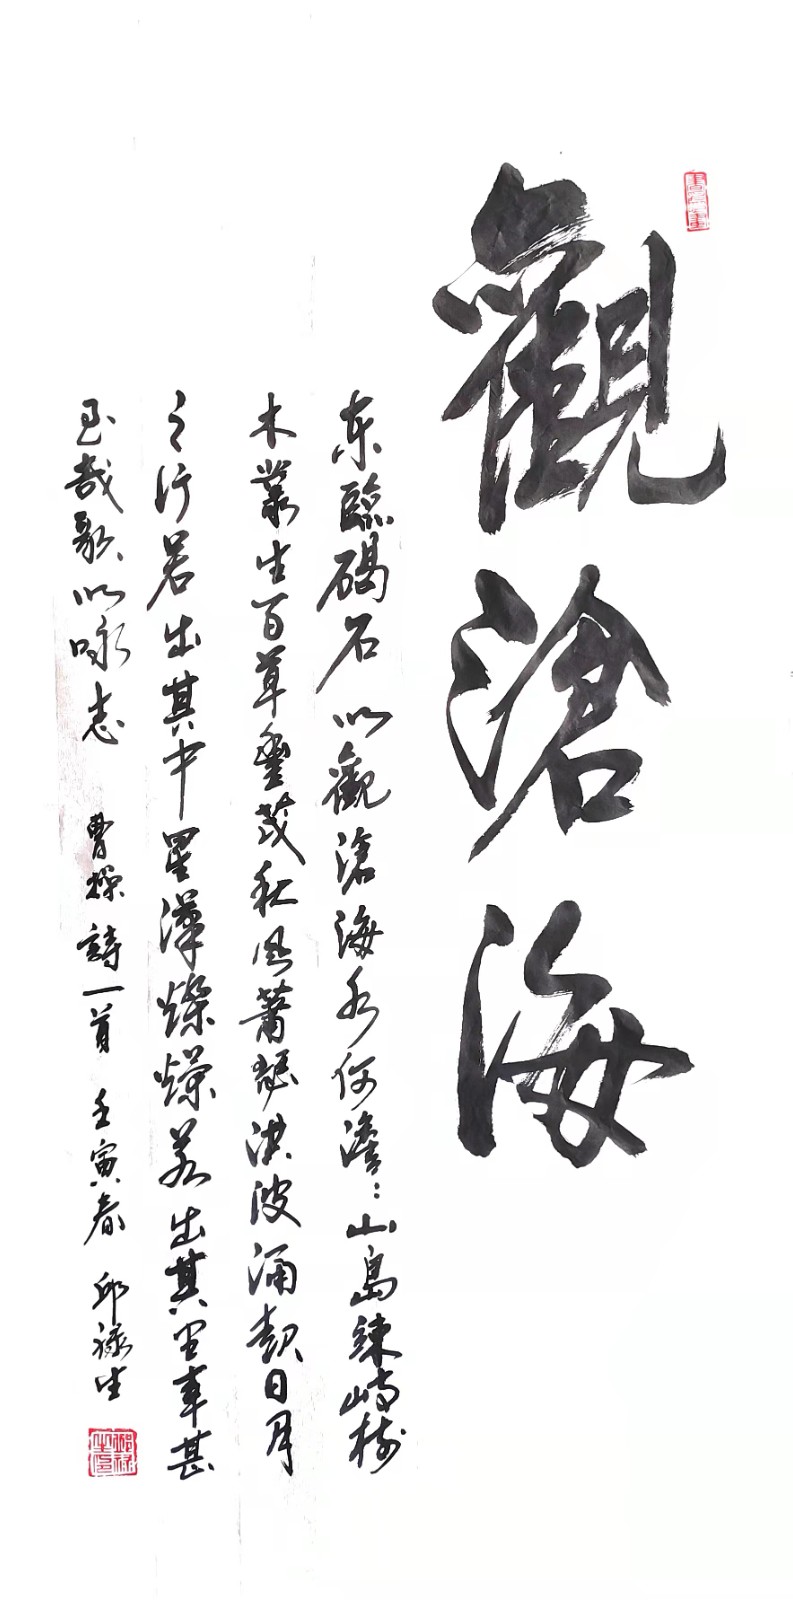 觀滄海
东臨碣石以觀滄海水何澹：山島竦峙樹
木叢生百草豐茂秋風蕭瑟洪波涌起日月
之行若出其中星漢燦爛若出其里幸甚
至哉歌以咏志 曹操詩一首 壬寅春 邱禄生